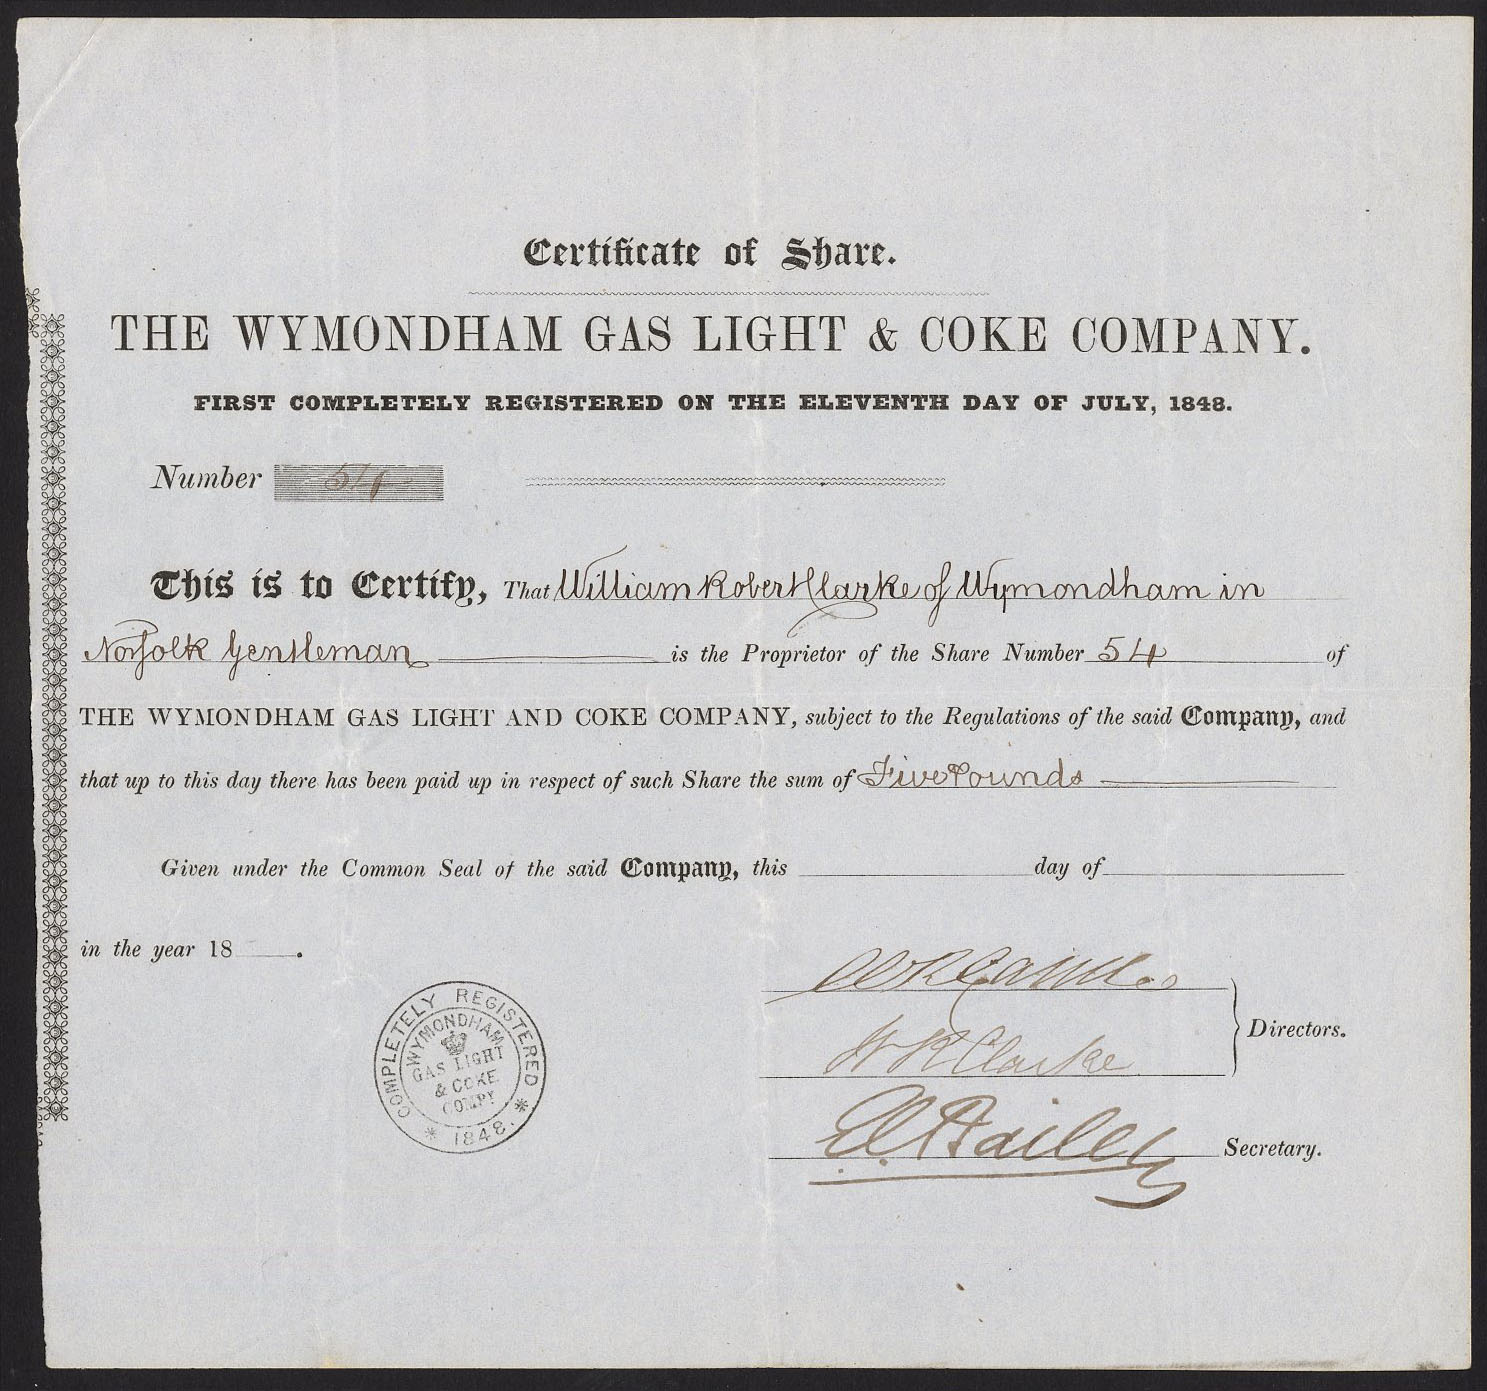 Certificate of Share.
THE WYMONDHAM GAS LIGHT & COKE COMPANY.
FIRST COMPLETELY REGISTERED ON THE ELEVENTH DAY OF JULY, 1848.
Number 54
This is to Certify, That William Robert Clarke of Wymondham in
Norfolk Gentleman is the Proprietor of the Share Number 54 of
THE WYMONDHAM GAS LIGHT AND COKE COMPANY, subject to the Regulations of the said Company, and
that up to this day there has been paid up in respect of such Share the sum of Five Pounds
Given under the Common Seal of the said Company, this day of
in the year 18 .
W R Clarke
Directors.
Secretary.
COMPLETELY REGISTERED
* 1848. *
WYMONDHAM
GAS LIGHT
& COKE
COMPY